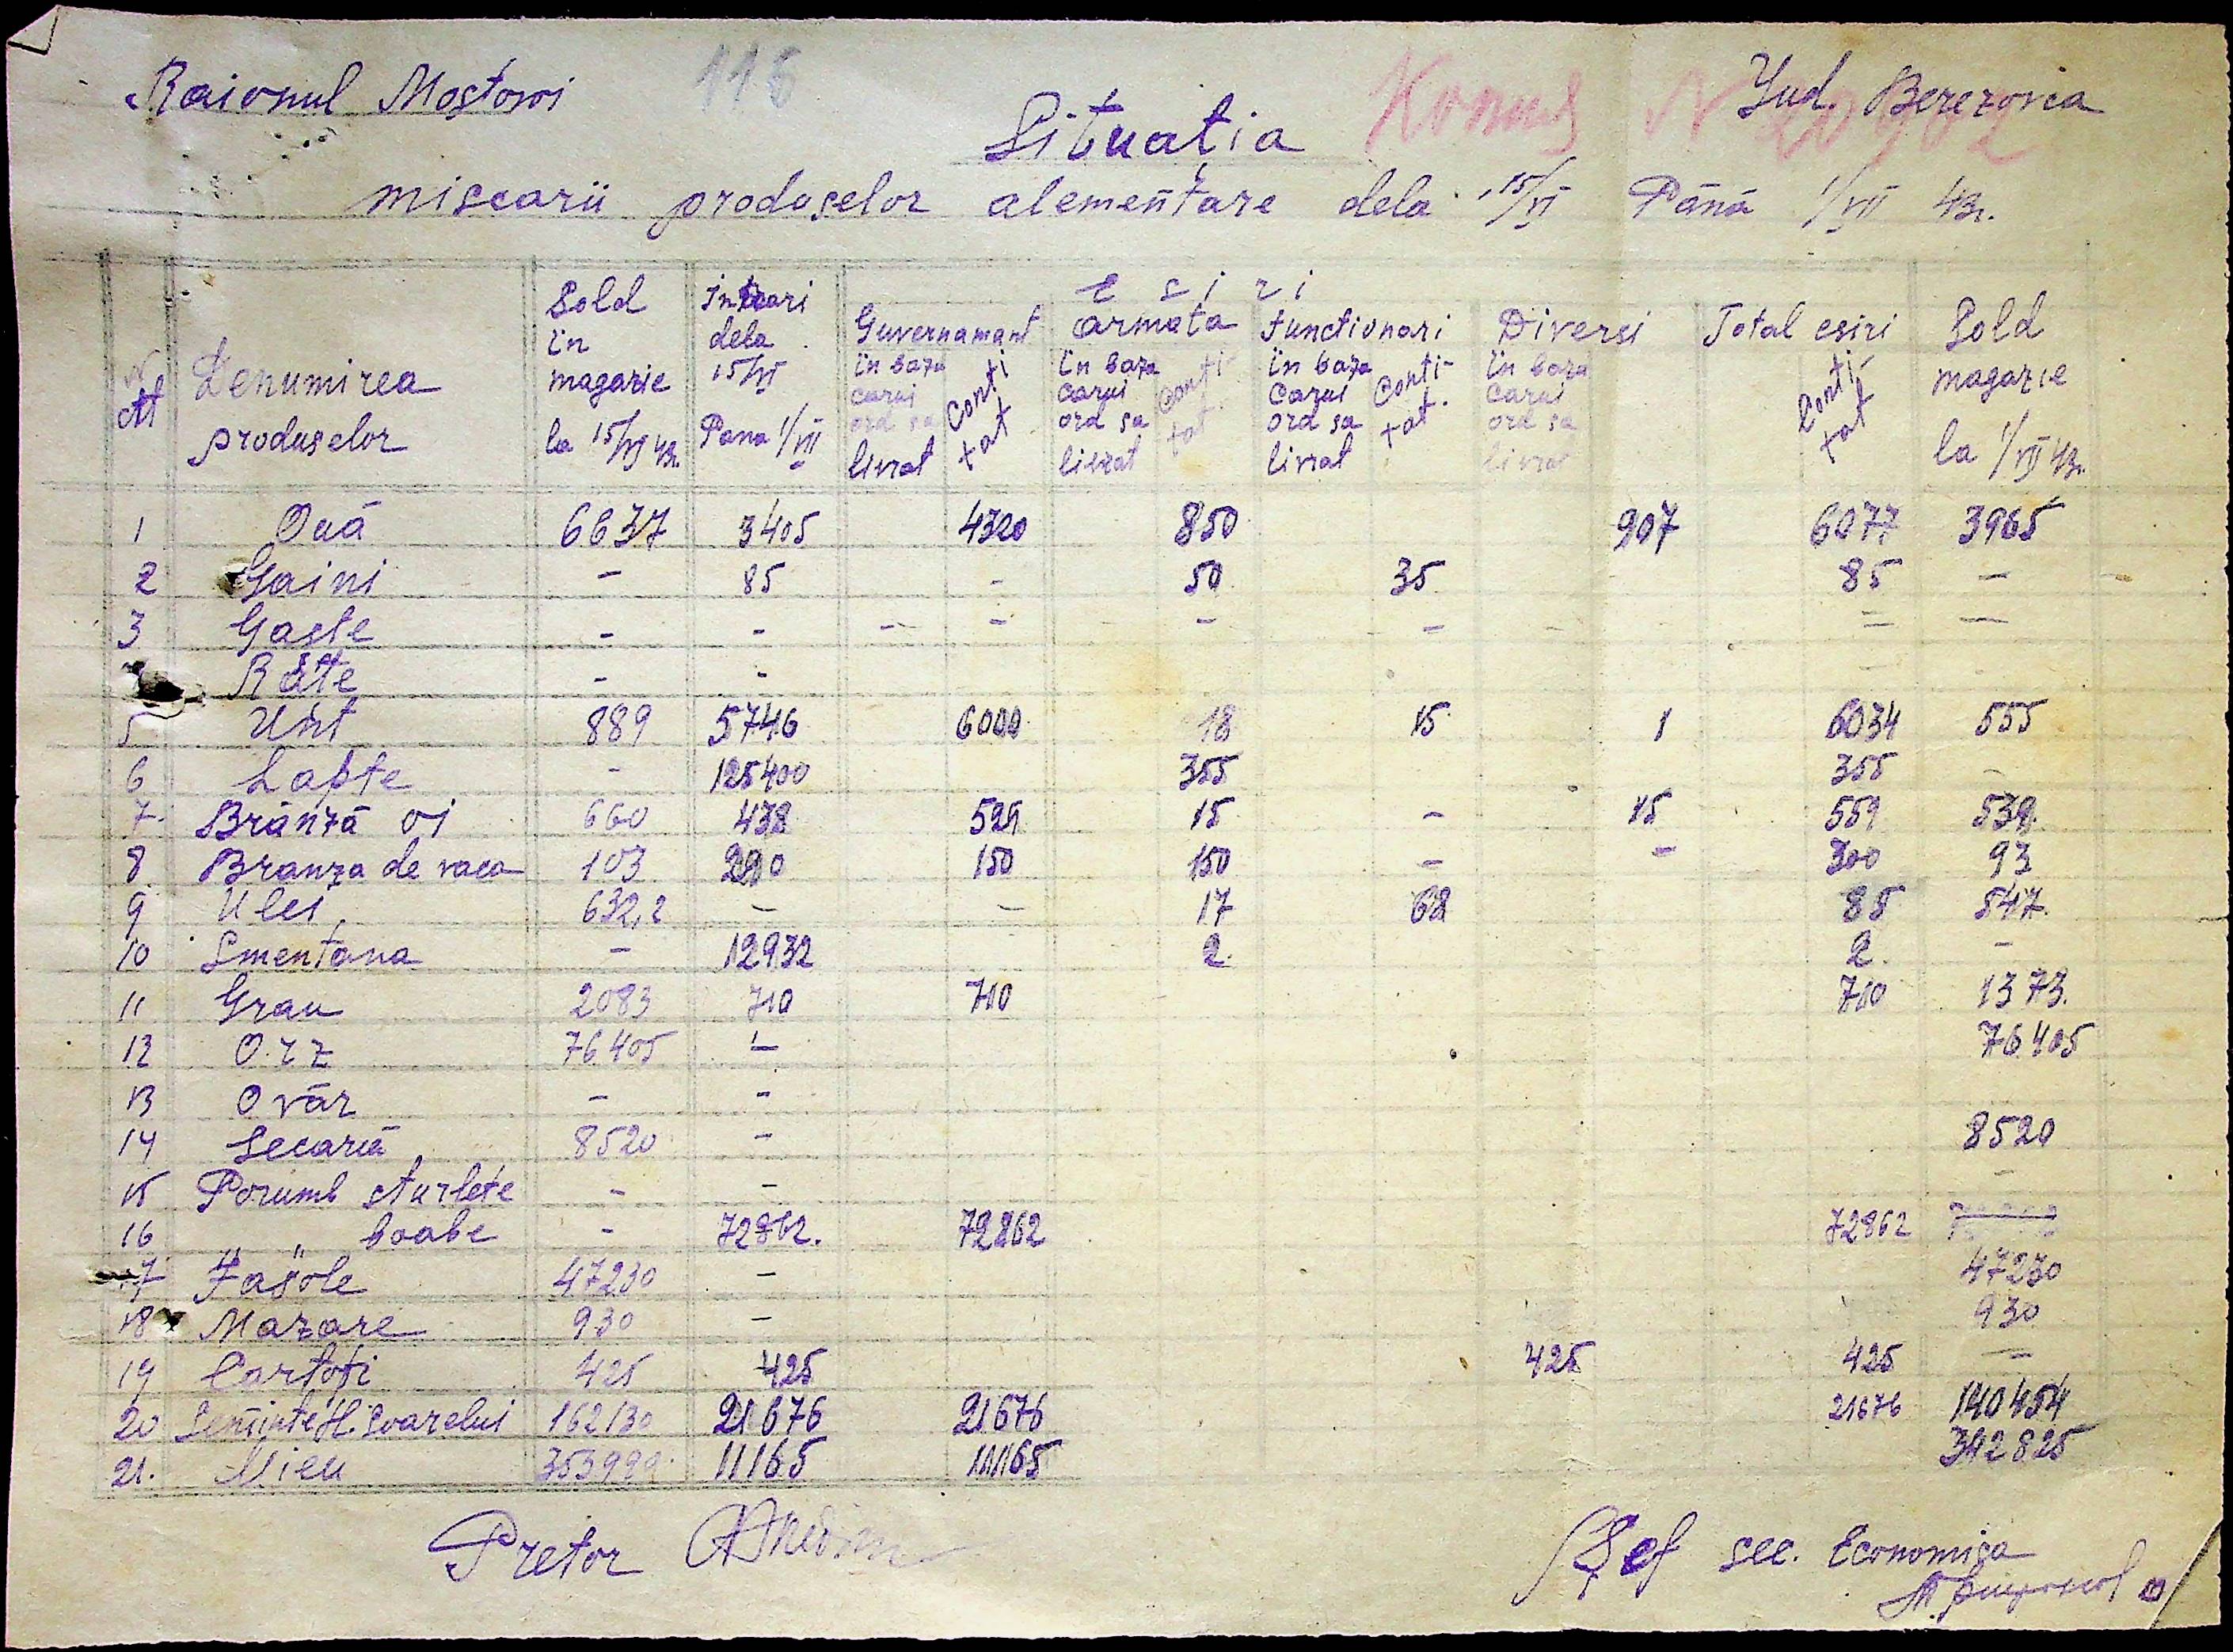 Raionul Mostowi 116 Jud. Berezovca
Situatia
miscarii produselor alementare dela 15/VI Pănă 1/VII 43.
Nr Denumirea produselor Sold în magazie la 15/VI 43. Intrari dela 15/VI Pana 1/VII Esiri Sold magazie la 1/VII 43.
Guvernamant armata Functionari Diversi Total esiri
în baza carui ord sa livrat Contitat în baza carui ord sa livrat Contitat. în baza carui ord sa livrat Contitat. în baza carui ord sa livrat Contitat
1 Ouă 6637 3405 4320 850 907 6077 3965
2 Gaini – 85 – 50 35 85 –
3 Gaste – – – – – – – –
Răte – –
5 Unt 889 5746 6000 18 15 1 6034 555
6 Lapte – 125400 355 355 –
7. Brănză oi 660 438 529 15 – 15 559 539.
8. Branza de vaca 103 290 150 150 – – 300 93
9 Ulei 632,2 – – 17 68 85 547.
10 Smentana – 12932 2. 2. –
11 Grau 2083 710 710 710 1373.
12 Orz 76405 – 76405
13 Ovăz – –
14 Secară 8520 – 8520
15 Porumb sturlete – – –
16 " " boabe – 72862. 72862 72862
17 Fasole 47230 – 47230
18 Mazare 930 – 930
19 Cartofi 425 425 425 425 –
20 Seminte fl. Soarelui 162130 21676 21676 21676 140454
21. Mieu 11165 11165 342825
Pretor Șef sec. Economica